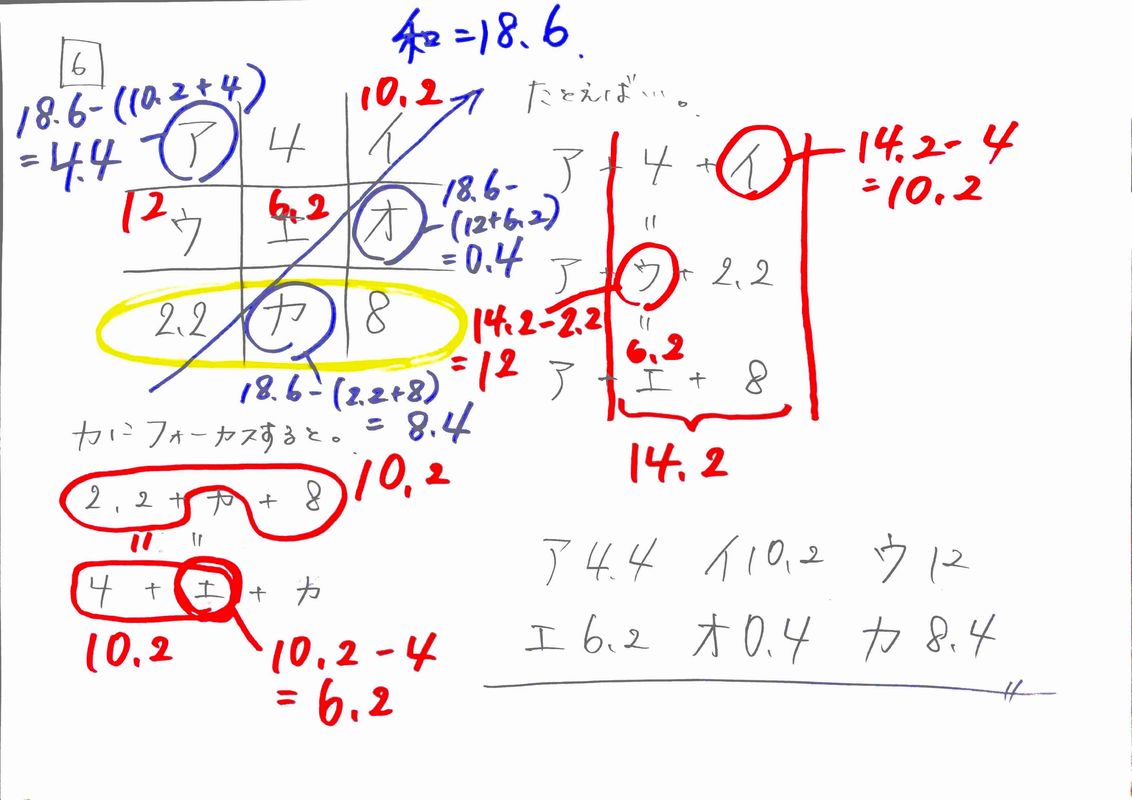 和=18.6.
6
18.6-(10.2+4)
=4.4
10.2
ア 4 イ
12 6.2
ウ エ オ
18.6-
(12+6.2)
=0.4
2.2 カ 8
18.6-(2.2+8)
= 8.4
たとえば…。
ア + 4 + イ
14.2-4
=10.2
=
ア + ウ + 2.2
14.2-2.2
=12
=
6.2
ア + エ + 8
14.2
カにフォーカスすると。
2.2 + カ + 8
10.2
= =
4 + エ + カ
10.2
10.2-4
= 6.2
ア4.4 イ10.2 ウ12
エ6.2 オ0.4 カ8.4